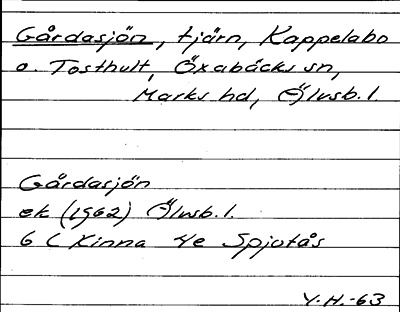 Gårdasjön, tjärn, Kappelabo
o. Tosthult, Öxabäcks sn,
Marks hd, Älvsb. l.
Gårdasjön
ek (1962) Älvsb. l.
6 C Kinna 4e Spjutås
Y.H.-63